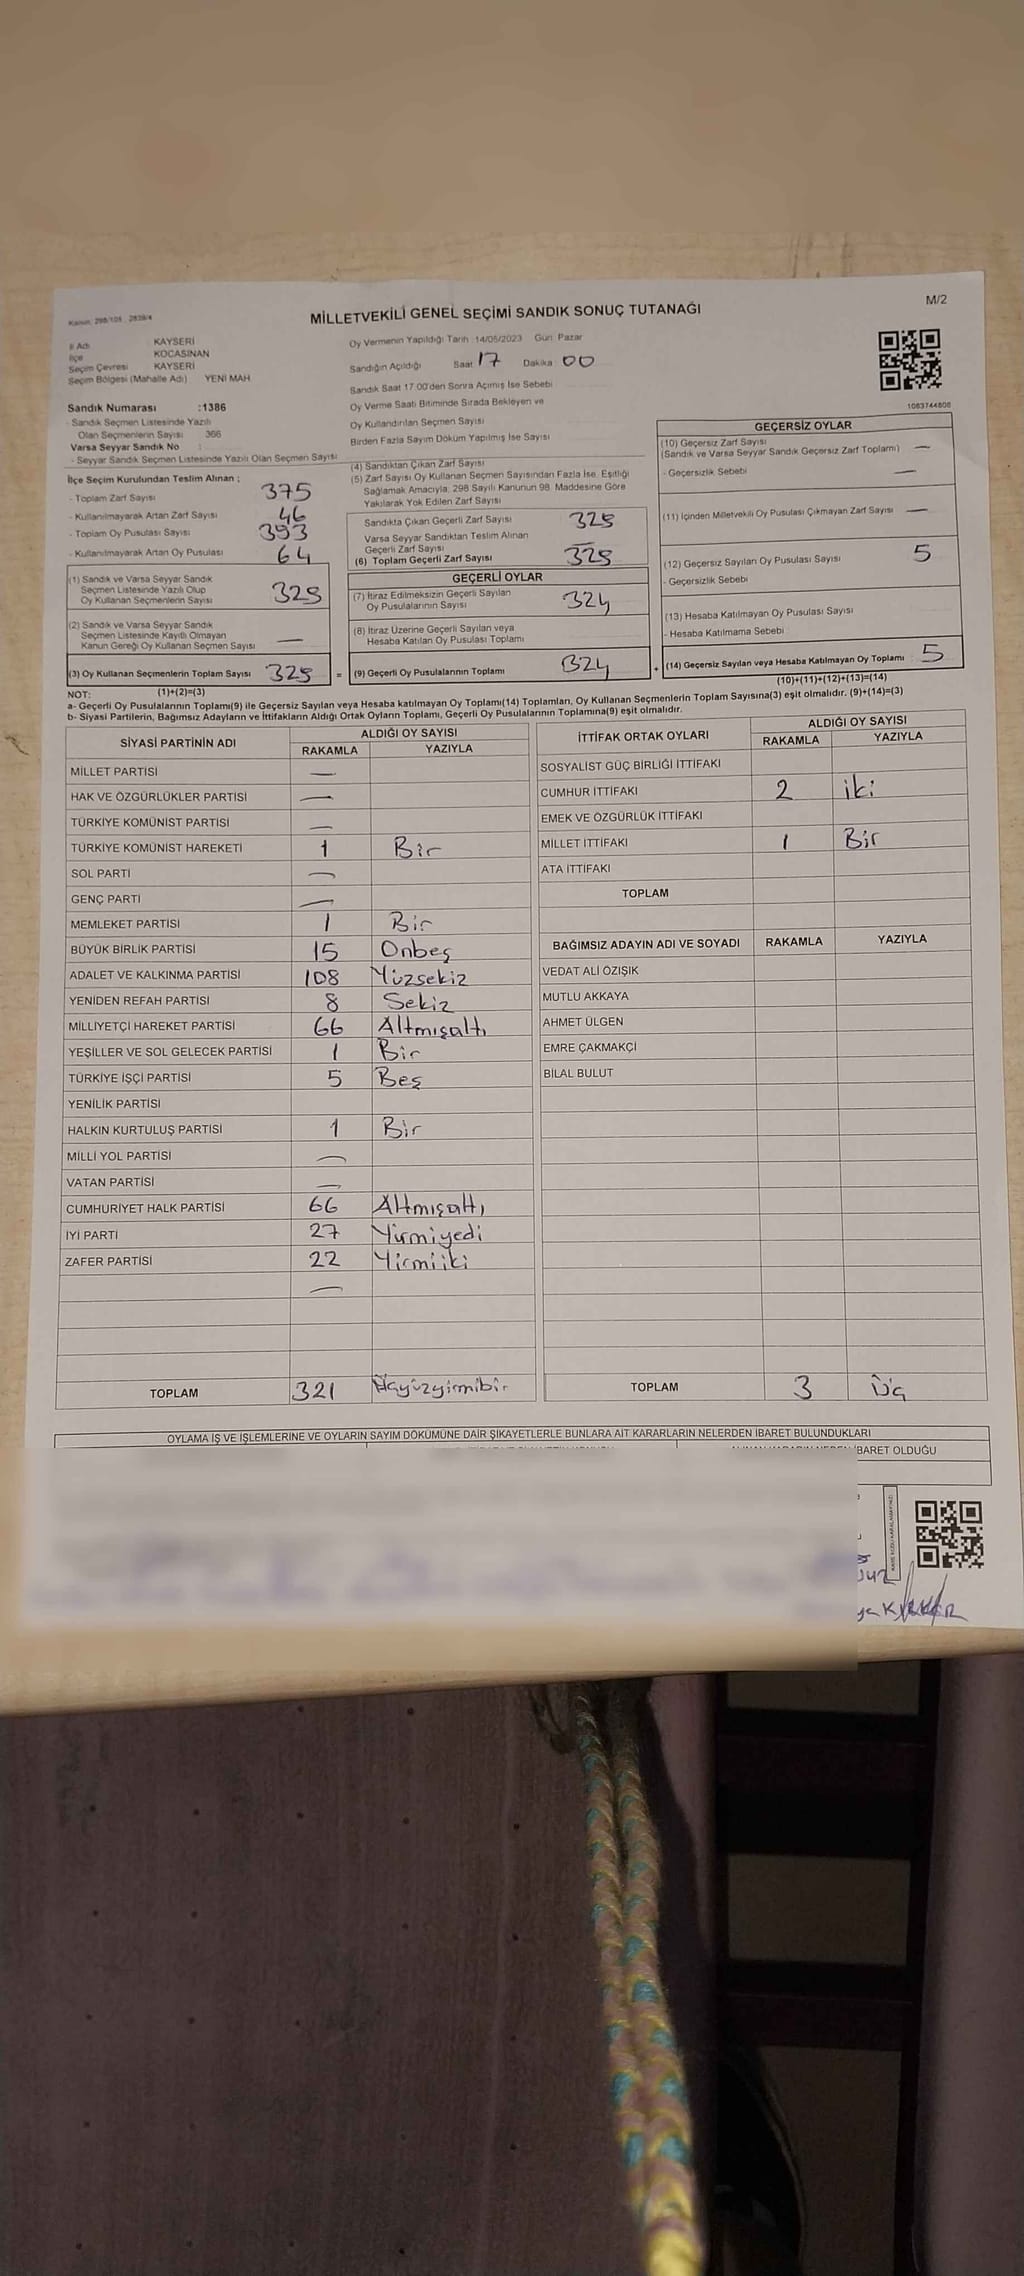 Kanun: 298/105 , 2839/4
MİLLETVEKİLİ GENEL SEÇİMİ SANDIK SONUÇ TUTANAĞI
M/2
İl Adı KAYSERİ
İlçe KOCASİNAN
Seçim Çevresi KAYSERİ
Seçim Bölgesi (Mahalle Adı) YENİ MAH
Sandık Numarası :1386
- Sandık Seçmen Listesinde Yazılı
Olan Seçmenlerin Sayısı 366
Varsa Seyyar Sandık No :
- Seyyar Sandık Seçmen Listesinde Yazılı Olan Seçmen Sayısı
Oy Vermenin Yapıldığı Tarih :14/05/2023 Gün: Pazar
Sandığın Açıldığı Saat 17 Dakika 00
Sandık Saat 17:00'den Sonra Açılmış İse Sebebi
Oy Verme Saati Bitiminde Sırada Bekleyen ve
Oy Kullandırılan Seçmen Sayısı
Birden Fazla Sayım Döküm Yapılmış İse Sayısı
1083744808
İlçe Seçim Kurulundan Teslim Alınan ;
- Toplam Zarf Sayısı 375
- Kullanılmayarak Artan Zarf Sayısı 46
- Toplam Oy Pusulası Sayısı 393
- Kullanılmayarak Artan Oy Pusulası 64
(1) Sandık ve Varsa Seyyar Sandık
Seçmen Listesinde Yazılı Olup
Oy Kullanan Seçmenlerin Sayısı 329
(2) Sandık ve Varsa Seyyar Sandık
Seçmen Listesinde Kayıtlı Olmayan
Kanun Gereği Oy Kullanan Seçmen Sayısı —
(3) Oy Kullanan Seçmenlerin Toplam Sayısı 329 =
(4) Sandıktan Çıkan Zarf Sayısı
(5) Zarf Sayısı Oy Kullanan Seçmen Sayısından Fazla İse, Eşitliği
Sağlamak Amacıyla, 298 Sayılı Kanunun 98. Maddesine Göre
Yakılarak Yok Edilen Zarf Sayısı
Sandıkta Çıkan Geçerli Zarf Sayısı 329
Varsa Seyyar Sandıktan Teslim Alınan
Geçerli Zarf Sayısı —
(6) Toplam Geçerli Zarf Sayısı 329
GEÇERLİ OYLAR
(7) İtiraz Edilmeksizin Geçerli Sayılan
Oy Pusulalarının Sayısı 324
(8) İtiraz Üzerine Geçerli Sayılan veya
Hesaba Katılan Oy Pusulası Toplamı
(9) Geçerli Oy Pusulalarının Toplamı 324 +
GEÇERSİZ OYLAR
(10) Geçersiz Zarf Sayısı
(Sandık ve Varsa Seyyar Sandık Geçersiz Zarf Toplamı) —
- Geçersizlik Sebebi —
(11) İçinden Milletvekili Oy Pusulası Çıkmayan Zarf Sayısı —
(12) Geçersiz Sayılan Oy Pusulası Sayısı 5
- Geçersizlik Sebebi
(13) Hesaba Katılmayan Oy Pusulası Sayısı
- Hesaba Katılmama Sebebi
(14) Geçersiz Sayılan veya Hesaba Katılmayan Oy Toplamı 5
(10)+(11)+(12)+(13)=(14)
NOT: (1)+(2)=(3)
a- Geçerli Oy Pusulalarının Toplamı(9) ile Geçersiz Sayılan veya Hesaba katılmayan Oy Toplamı(14) Toplamları, Oy Kullanan Seçmenlerin Toplam Sayısına(3) eşit olmalıdır. (9)+(14)=(3)
b- Siyasi Partilerin, Bağımsız Adayların ve İttifakların Aldığı Ortak Oyların Toplamı, Geçerli Oy Pusulalarının Toplamına(9) eşit olmalıdır.
SİYASİ PARTİNİN ADI ALDIĞI OY SAYISI
RAKAMLA YAZIYLA
MİLLET PARTİSİ —
HAK VE ÖZGÜRLÜKLER PARTİSİ —
TÜRKİYE KOMÜNİST PARTİSİ —
TÜRKİYE KOMÜNİST HAREKETİ 1 Bir
SOL PARTİ —
GENÇ PARTİ —
MEMLEKET PARTİSİ 1 Bir
BÜYÜK BİRLİK PARTİSİ 15 Onbeş
ADALET VE KALKINMA PARTİSİ 108 Yüzsekiz
YENİDEN REFAH PARTİSİ 8 Sekiz
MİLLİYETÇİ HAREKET PARTİSİ 66 Altmışaltı
YEŞİLLER VE SOL GELECEK PARTİSİ 1 Bir
TÜRKİYE İŞÇİ PARTİSİ 5 Beş
YENİLİK PARTİSİ
HALKIN KURTULUŞ PARTİSİ 1 Bir
MİLLİ YOL PARTİSİ —
VATAN PARTİSİ —
CUMHURİYET HALK PARTİSİ 66 Altmışaltı
İYİ PARTİ 27 Yirmiyedi
ZAFER PARTİSİ 22 Yirmiiki
—
TOPLAM 321 Üçyüzyirmibir
İTTİFAK ORTAK OYLARI ALDIĞI OY SAYISI
RAKAMLA YAZIYLA
SOSYALİST GÜÇ BİRLİĞİ İTTİFAKI
CUMHUR İTTİFAKI 2 iki
EMEK VE ÖZGÜRLÜK İTTİFAKI
MİLLET İTTİFAKI 1 Bir
ATA İTTİFAKI
TOPLAM
BAĞIMSIZ ADAYIN ADI VE SOYADI RAKAMLA YAZIYLA
VEDAT ALİ ÖZIŞIK
MUTLU AKKAYA
AHMET ÜLGEN
EMRE ÇAKMAKÇİ
BİLAL BULUT
TOPLAM 3 Üç
OYLAMA İŞ VE İŞLEMLERİNE VE OYLARIN SAYIM DÖKÜMÜNE DAİR ŞİKAYETLERLE BUNLARA AİT KARARLARIN NELERDEN İBARET BULUNDUKLARI
İBARET OLDUĞU